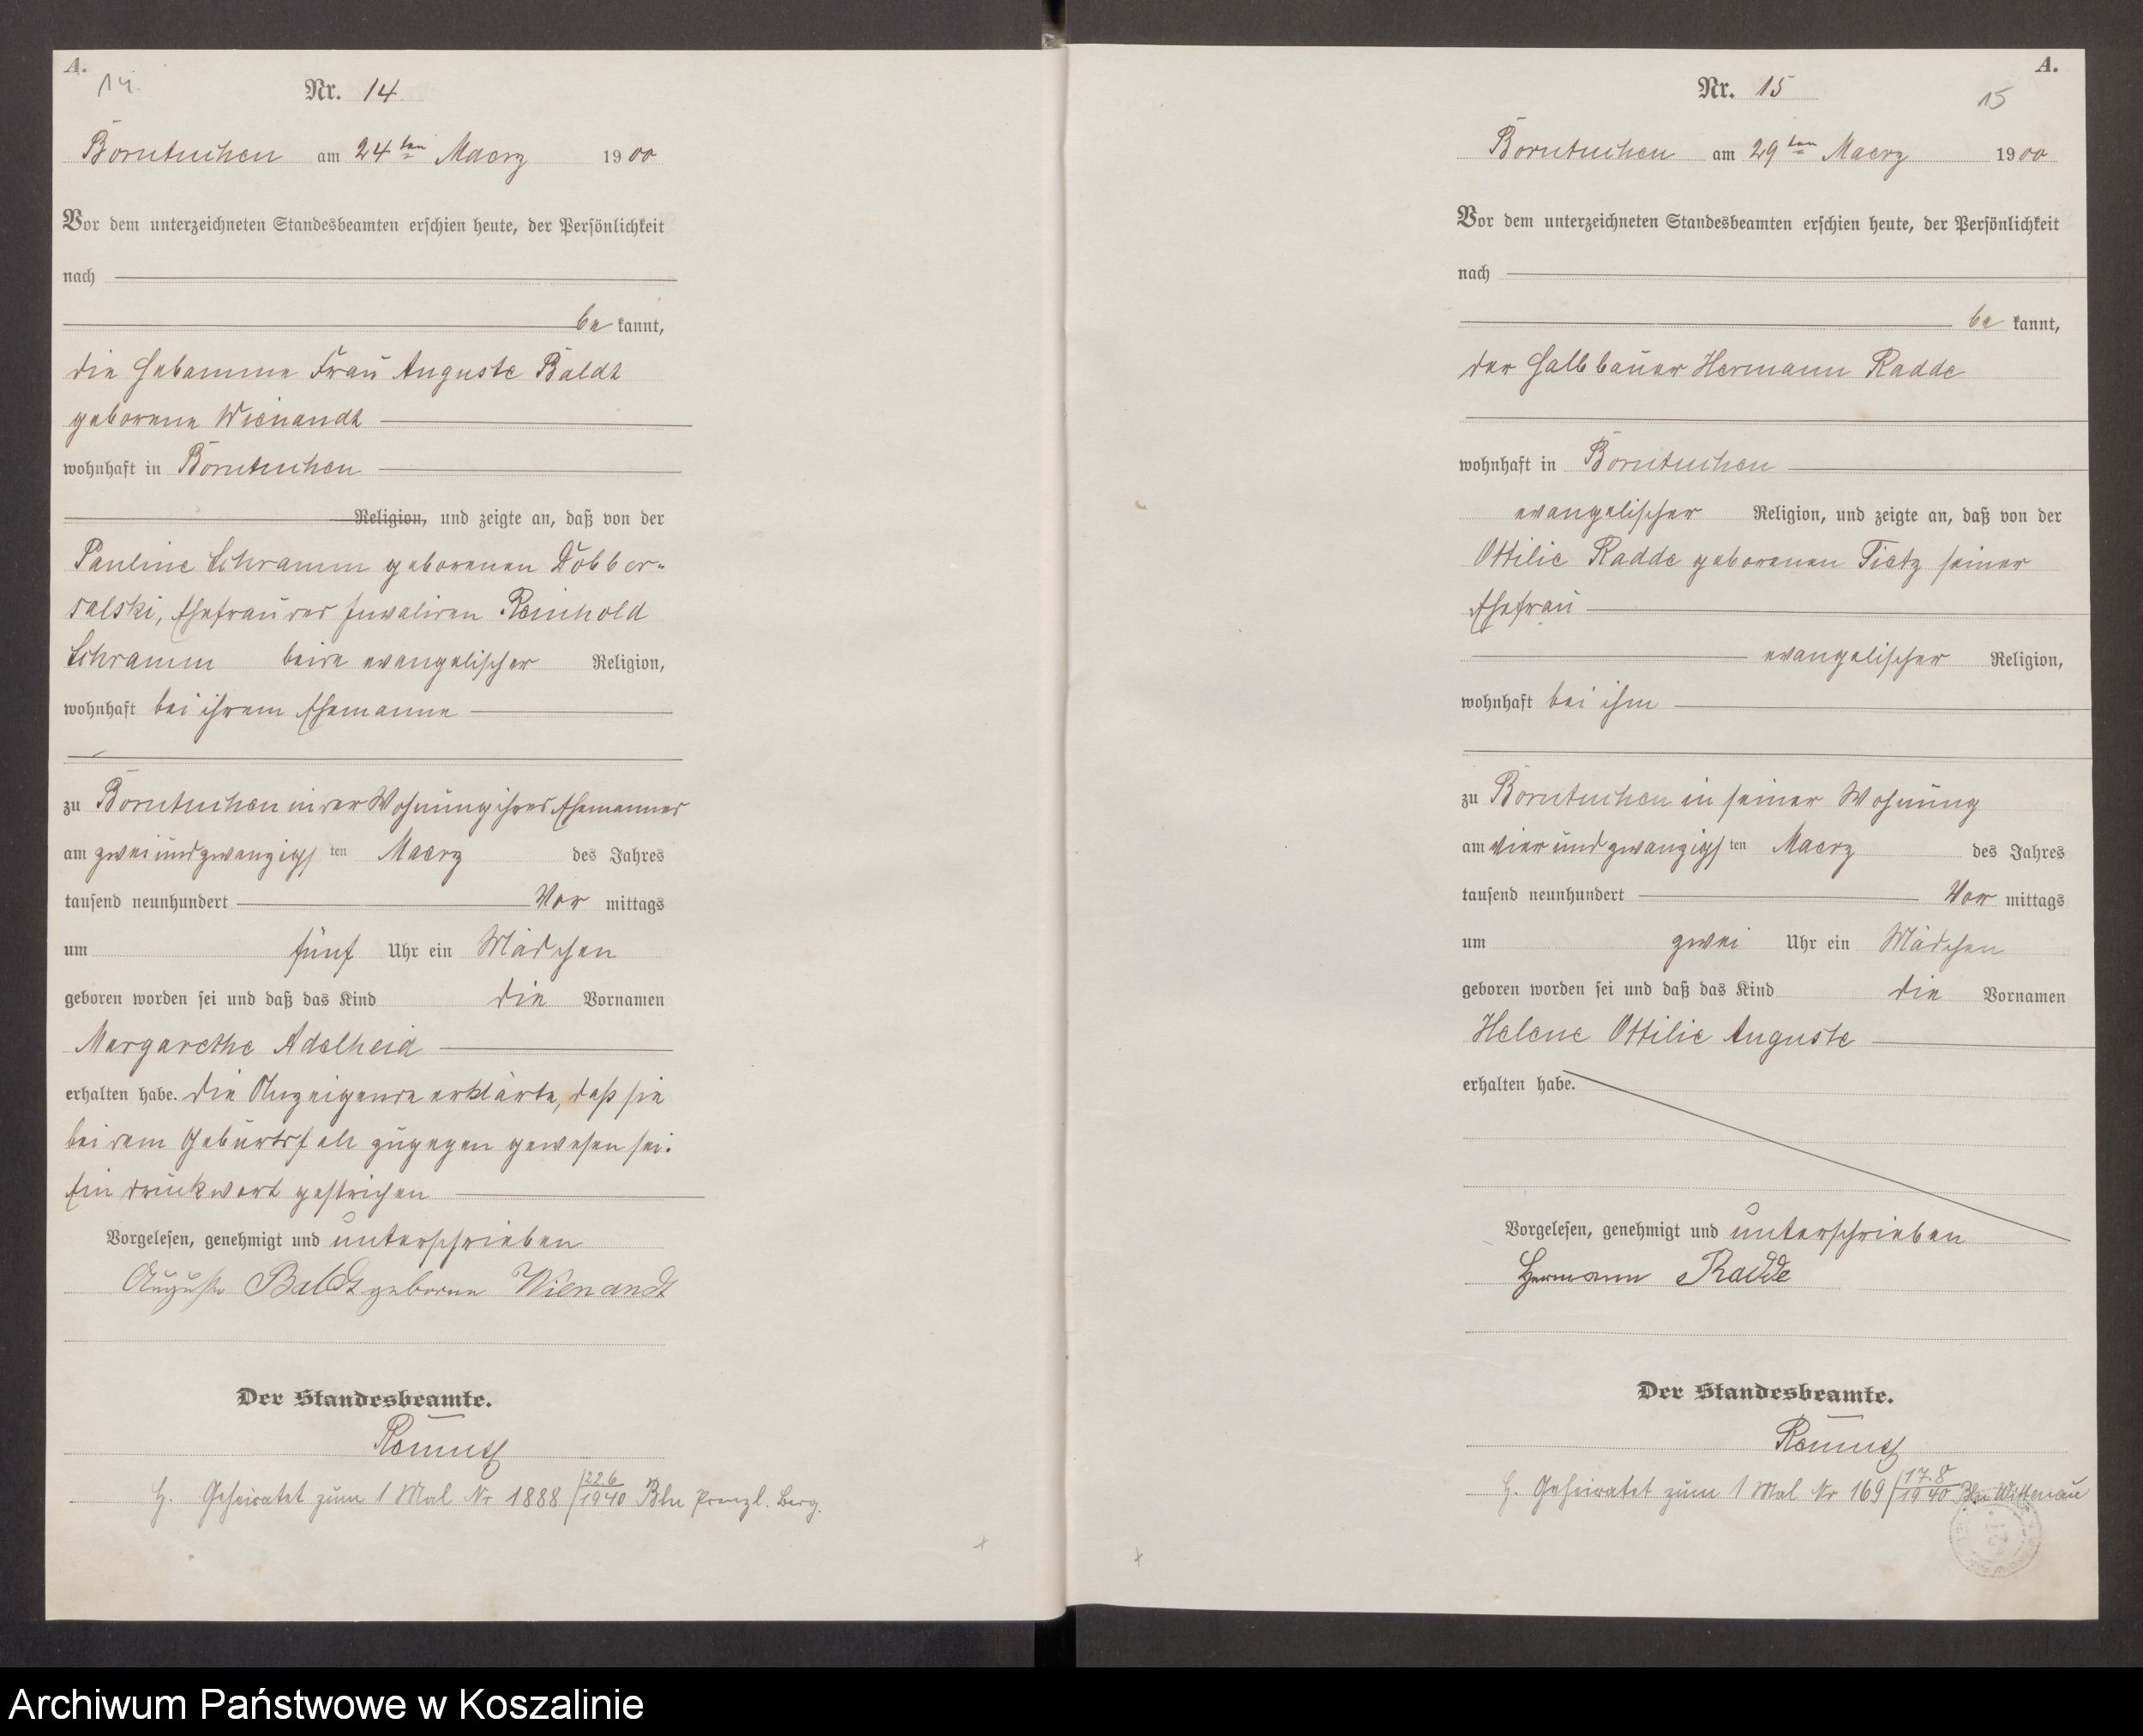 A.
14
Nr. 14
Borntuchen am 24ten Maerz 1900
Vor dem unterzeichneten Standesbeamten erschien heute, der Persönlichkeit
nach
be kannt,
die Hebamme Frau Auguste Baldt
geborene Wienandt
wohnhaft in Borntuchen
Religion, und zeigte an, daß von der
Pauline Schramm geborenen Dobber-
salski, Ehefrau des Invaliden Reinhold
Schramm beide evangelischer Religion,
wohnhaft bei ihrem Ehemanne
zu Borntuchen in der Wohnung ihres Ehemannes
am zwei und zwanzigsten Maerz des Jahres
tausend neunhundert Vor mittags
um fünf Uhr ein Mädchen
geboren worden sei und daß das Kind die Vornamen
Margarethe Adelheid
erhalten habe. Die Anzeigende erklärte, daß sie
bei dem Geburtsfall zugegen gewesen sei.
Ein Druckwort gestrichen
Vorgelesen, genehmigt und unterschrieben
Auguste Baldt geborene Wienandt
Der Standesbeamte.
H. Geheiratet zum 1 Mal Nr 1888/1940 22.6 Bln Prenzl. Berg.
A.
Nr. 15
15
Borntuchen am 29ten Maerz 1900
Vor dem unterzeichneten Standesbeamten erschien heute, der Persönlichkeit
nach
be kannt,
der Halbbauer Hermann Radde
wohnhaft in Borntuchen
evangelischer Religion, und zeigte an, daß von der
Ottilie Radde geborenen Tietz seiner
Ehefrau
evangelischer Religion,
wohnhaft bei ihm
zu Borntuchen in seiner Wohnung
am vier und zwanzigsten Maerz des Jahres
tausend neunhundert Vor mittags
um zwei Uhr ein Mädchen
geboren worden sei und daß das Kind die Vornamen
Helene Ottilie Auguste
erhalten habe.
Vorgelesen, genehmigt und unterschrieben
Hermann Radde
Der Standesbeamte.
H. Geheiratet zum 1 Mal Nr 169/1940 17.8 Bln Wittenau
Archiwum Państwowe w Koszalinie